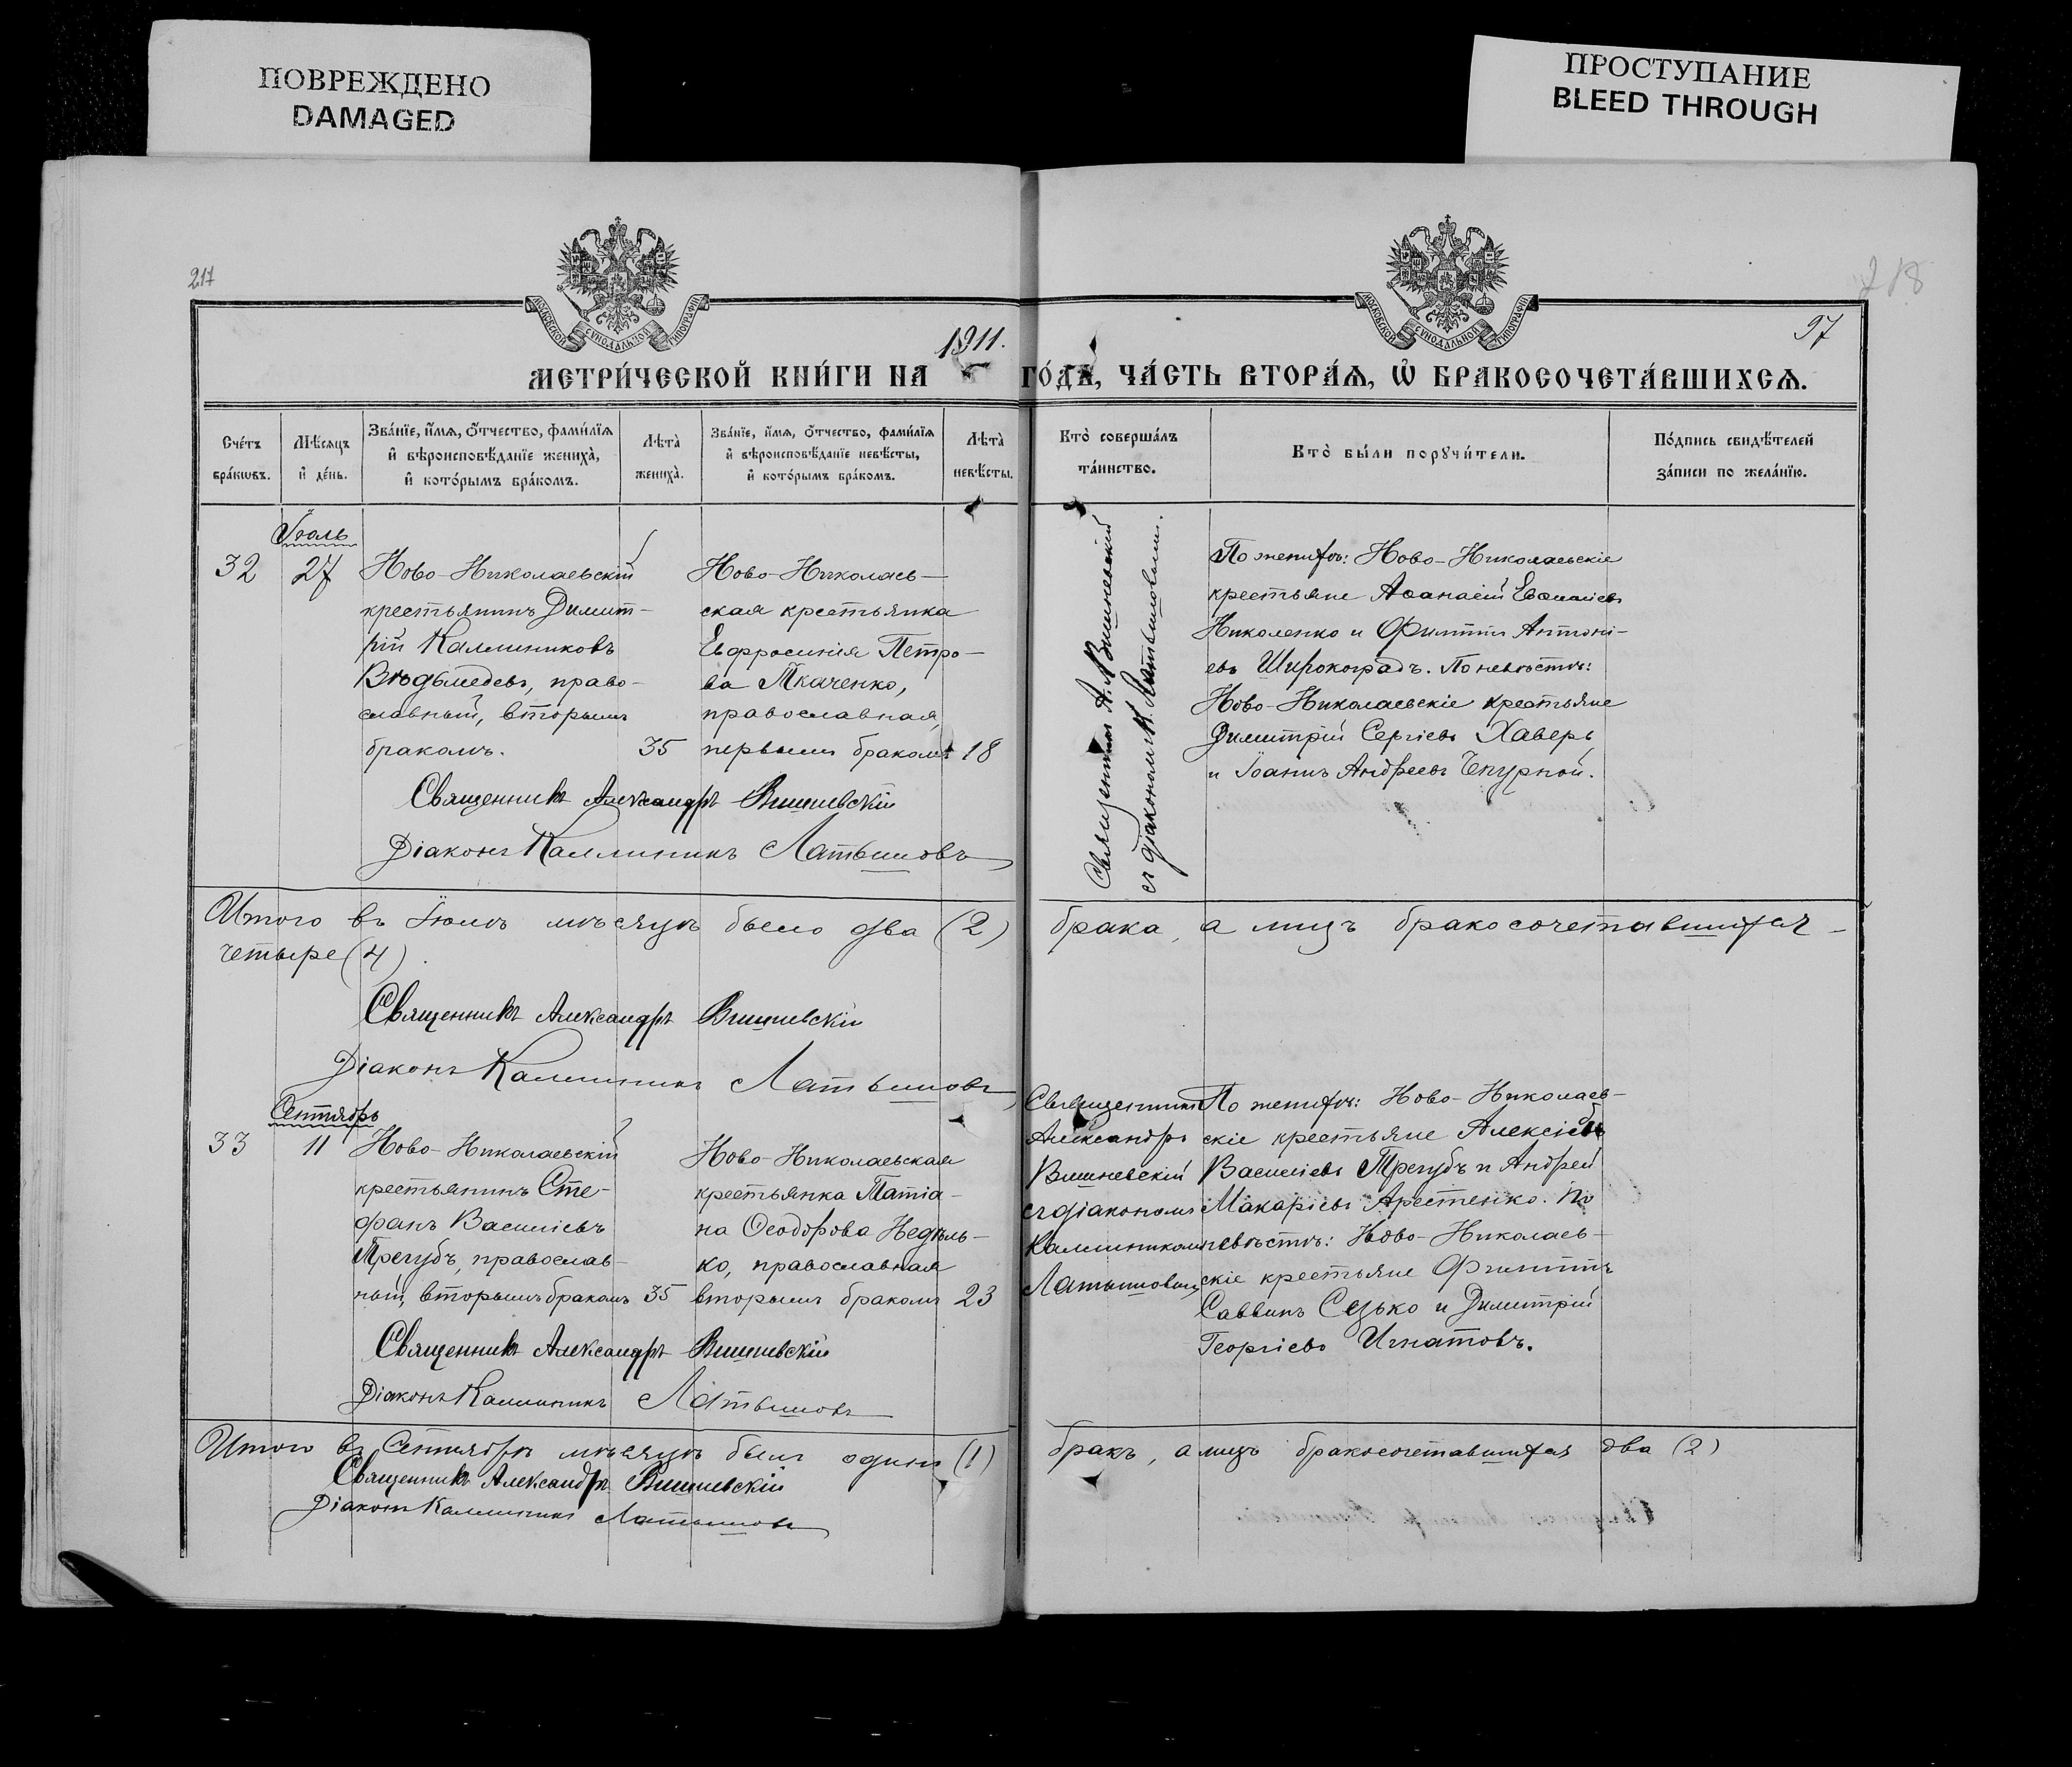 ПОВРЕЖДЕНО
DAMAGED
ПРОСТУПАНИЕ
BLEED THROUGH
217
218
97
МОСКОВСКОЙ СѴНОДАЛЬНОЙ ТИПОГРАФІИ
МОСКОВСКОЙ СѴНОДАЛЬНОЙ ТИПОГРАФІИ
1911.
МЕТРИ́ЧЕСКОЙ КНИ́ГИ НА ГО́ДЪ, ЧА́СТЬ ВТОРА́Ѧ, Ѽ БРАКОСОЧЕТА́ВШИХСѦ.
Сче́тъ
бра́кѡвъ.
Мѣ́сяцъ
и҆ де́нь.
Зва́нїе, и҆́мѧ, ѻ҆́тчество, фами́лїѧ
и҆ вѣроисповѣ́данїе жениха̀,
и҆ кото́рымъ бра́комъ.
Лѣта̀
жениха̀.
Зва́нїе, и҆́мѧ, ѻ҆́тчество, фами́лїѧ
и҆ вѣроисповѣ́данїе невѣ́сты,
и҆ кото́рымъ бра́комъ.
Лѣта̀
невѣ́сты.
Кто̀ соверша́лъ
та́инство.
Кто̀ бы́ли порꙋчи́тели.
По́дпись свидѣ́телей
за́писи по жела́нїю.
Іюль
32
27
Ново-Николаевскій
крестьянинъ Димит-
рій Каллиниковъ
Вѣдьмедевъ, право-
славный, вторымъ
бракомъ.
35
Ново-Николаев-
ская крестьянка
Евфросинія Петро-
ва Ткаченко,
православная,
первымъ бракомъ
18
Священникъ А. Вишневскій
съ діакономъ К. Латышовымъ.
По женихѣ: Ново-Николаевскіе
крестьяне Аѳанасій Евѳиміевъ
Николенко и Филиппъ Антоні-
евъ Широкоградъ. По невѣстѣ:
Ново-Николаевскіе крестьяне
Димитрій Сергіевъ Хаверь
и Іоаннъ Андреевъ Чепурной.
Священникъ Александръ Вишневскій
Діаконъ Каллиникъ Латышовъ
Итого въ Іюлѣ мѣсяцѣ было два (2) брака, а лицъ бракосочетавшихся -
четыре (4).
Священникъ Александръ Вишневскій
Діаконъ Каллиникъ Латышовъ
Сентябрь
33
11
Ново-Николаевскій
крестьянинъ Сте-
фанъ Василіевъ
Трегубъ, православ-
ный, вторымъ бракомъ
35
Ново-Николаевская
крестьянка Татіа-
на Ѳеодорова Недѣль-
ко, православная
вторымъ бракомъ
23
Священникъ
Александръ
Вишневскій
съ діакономъ
Каллиникомъ
Латышовымъ
По женихѣ: Ново-Николаев-
скіе крестьяне Алексій
Василіевъ Трегубъ и Андрей
Макаріевъ Арестенко. По
невѣстѣ: Ново-Николаев-
скіе крестьяне Филиппъ
Саввинъ Сезько и Димитрій
Георгіевъ Игнатовъ.
Священникъ Александръ Вишневскій
Діаконъ Каллиникъ Латышовъ
Итого въ Сентябрѣ мѣсяцѣ былъ одинъ (1) бракъ, а лицъ бракосочетавшихся два (2)
Священникъ Александръ Вишневскій
Діаконъ Каллиникъ Латышовъ